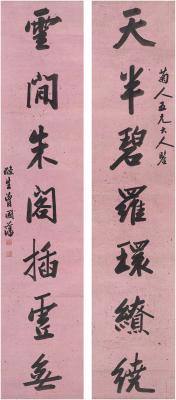 菊人五兄大人
天半碧羅環繚繞
雲間朱閣插虛無
滌生曾國藩